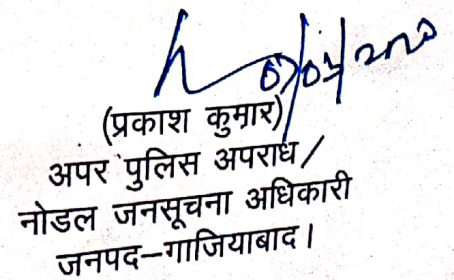 (प्रकाश कुमार)
अपर पुलिस अपराध/
नोडल जनसूचना अधिकारी
जनपद–गाजियाबाद।